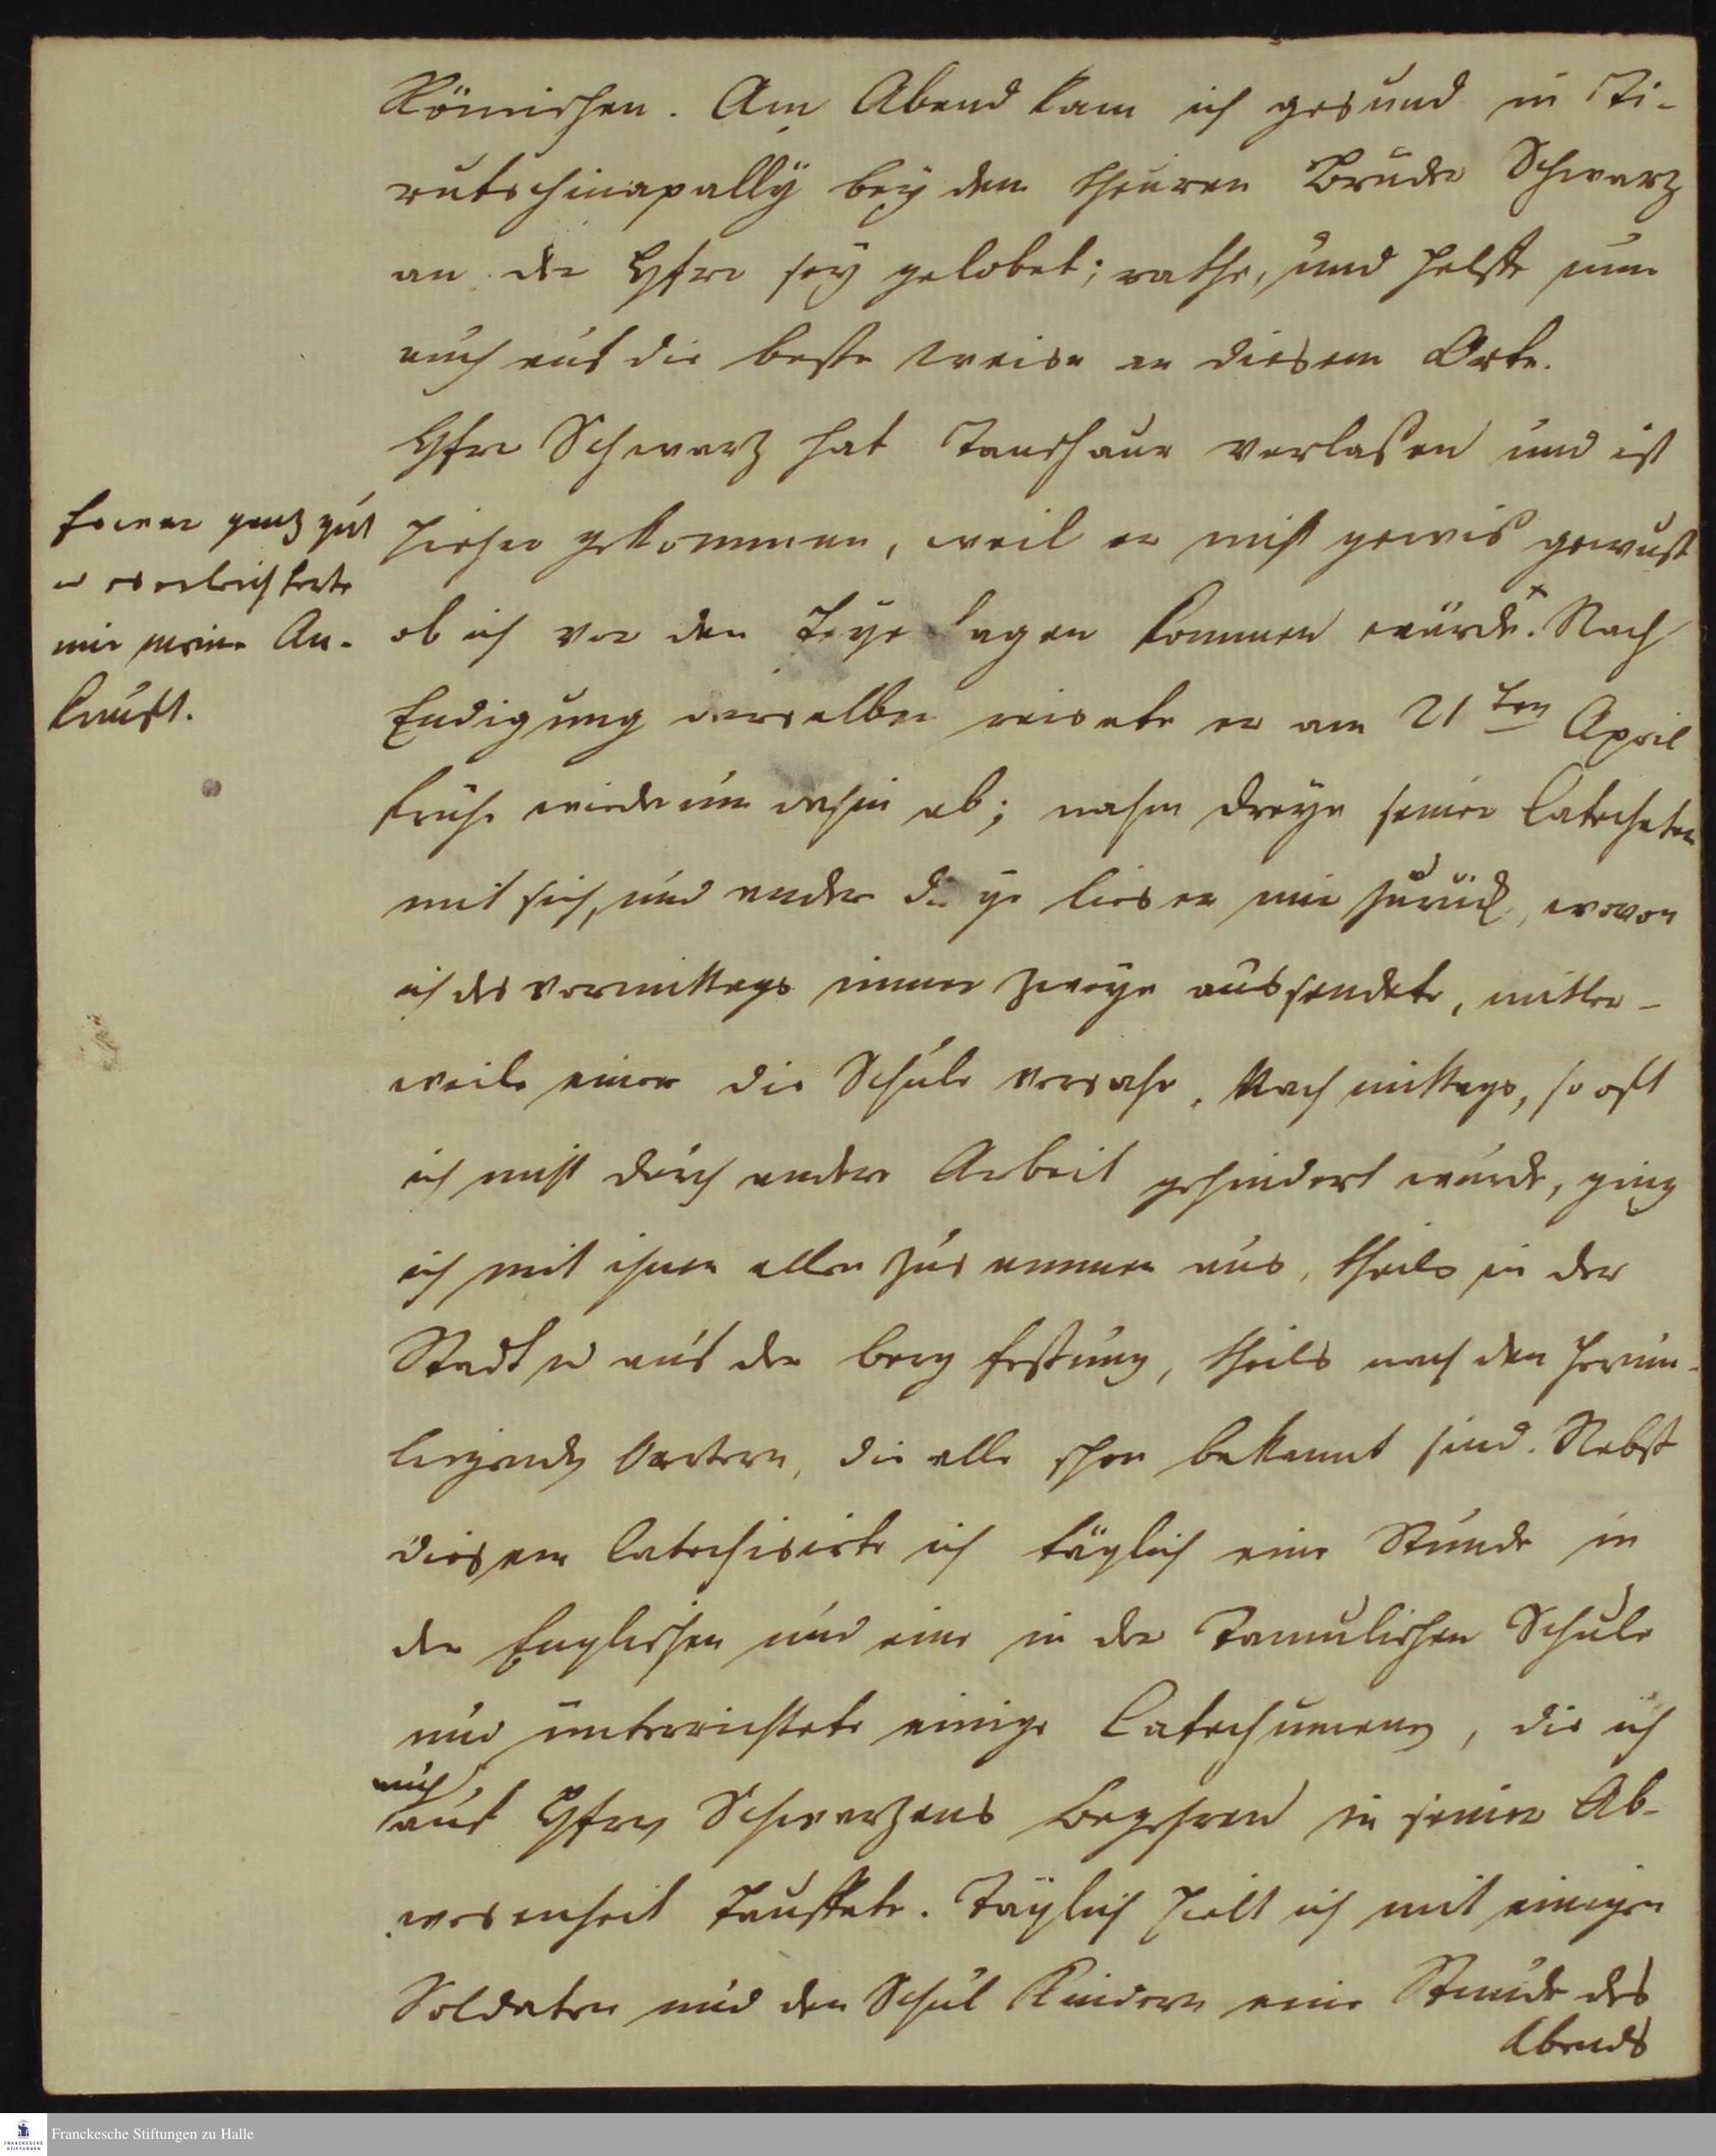 Römischen. Am Abend kam ich gesund in Ti-
rutschinapally bey dem theuren Bruder Schwarz
an der HErr sey gelobet; rathe, und helffe nun
auch auf die beste Weise an diesem Orte.
HErr Schwarz hat Tanschaur verlaßen und ist
hieher gekommen, weil er nicht gewis gewust
ob ich vor den Feyertagen kommen würde.⁺ Nach
Es war ganz gut
u es erleichterte
mir meine An-
kunft.
Endigung derselben reisete er am 21ten April
frühe wiederum dahin ab; nahm dreye seiner Catecheten
mit sich, und andere dreye lies er mir zurück, wovon
ich des vormittags immer zweye aussendete, mitler-
weile einer die Schule versahe. Nachmittags, so oft
ich nicht durch andere Arbeit gehindert wurde, ging
ich mit ihnen allen zusammen aus, theils in der
Stadt u auf der berg festung, theils nach den herum-
liegenden Oertern, die alle schon bekannt sind. Nebst
diesem Catechisirte ich täglich eine Stunde in
der Englischen und eine in der Tamulischen Schule
und unterrichtete einige Catechumenen, die ich
auch
auf HErrn Schwarzens Begehren in seiner Ab-
wesenheit Tauffete. Täglich hielt ich mit einigen
Soldaten und den Schul Kindern eine Stunde des
Abends
Franckesche Stiftungen zu Halle
FRANCKESCHE
STIFTUNGEN